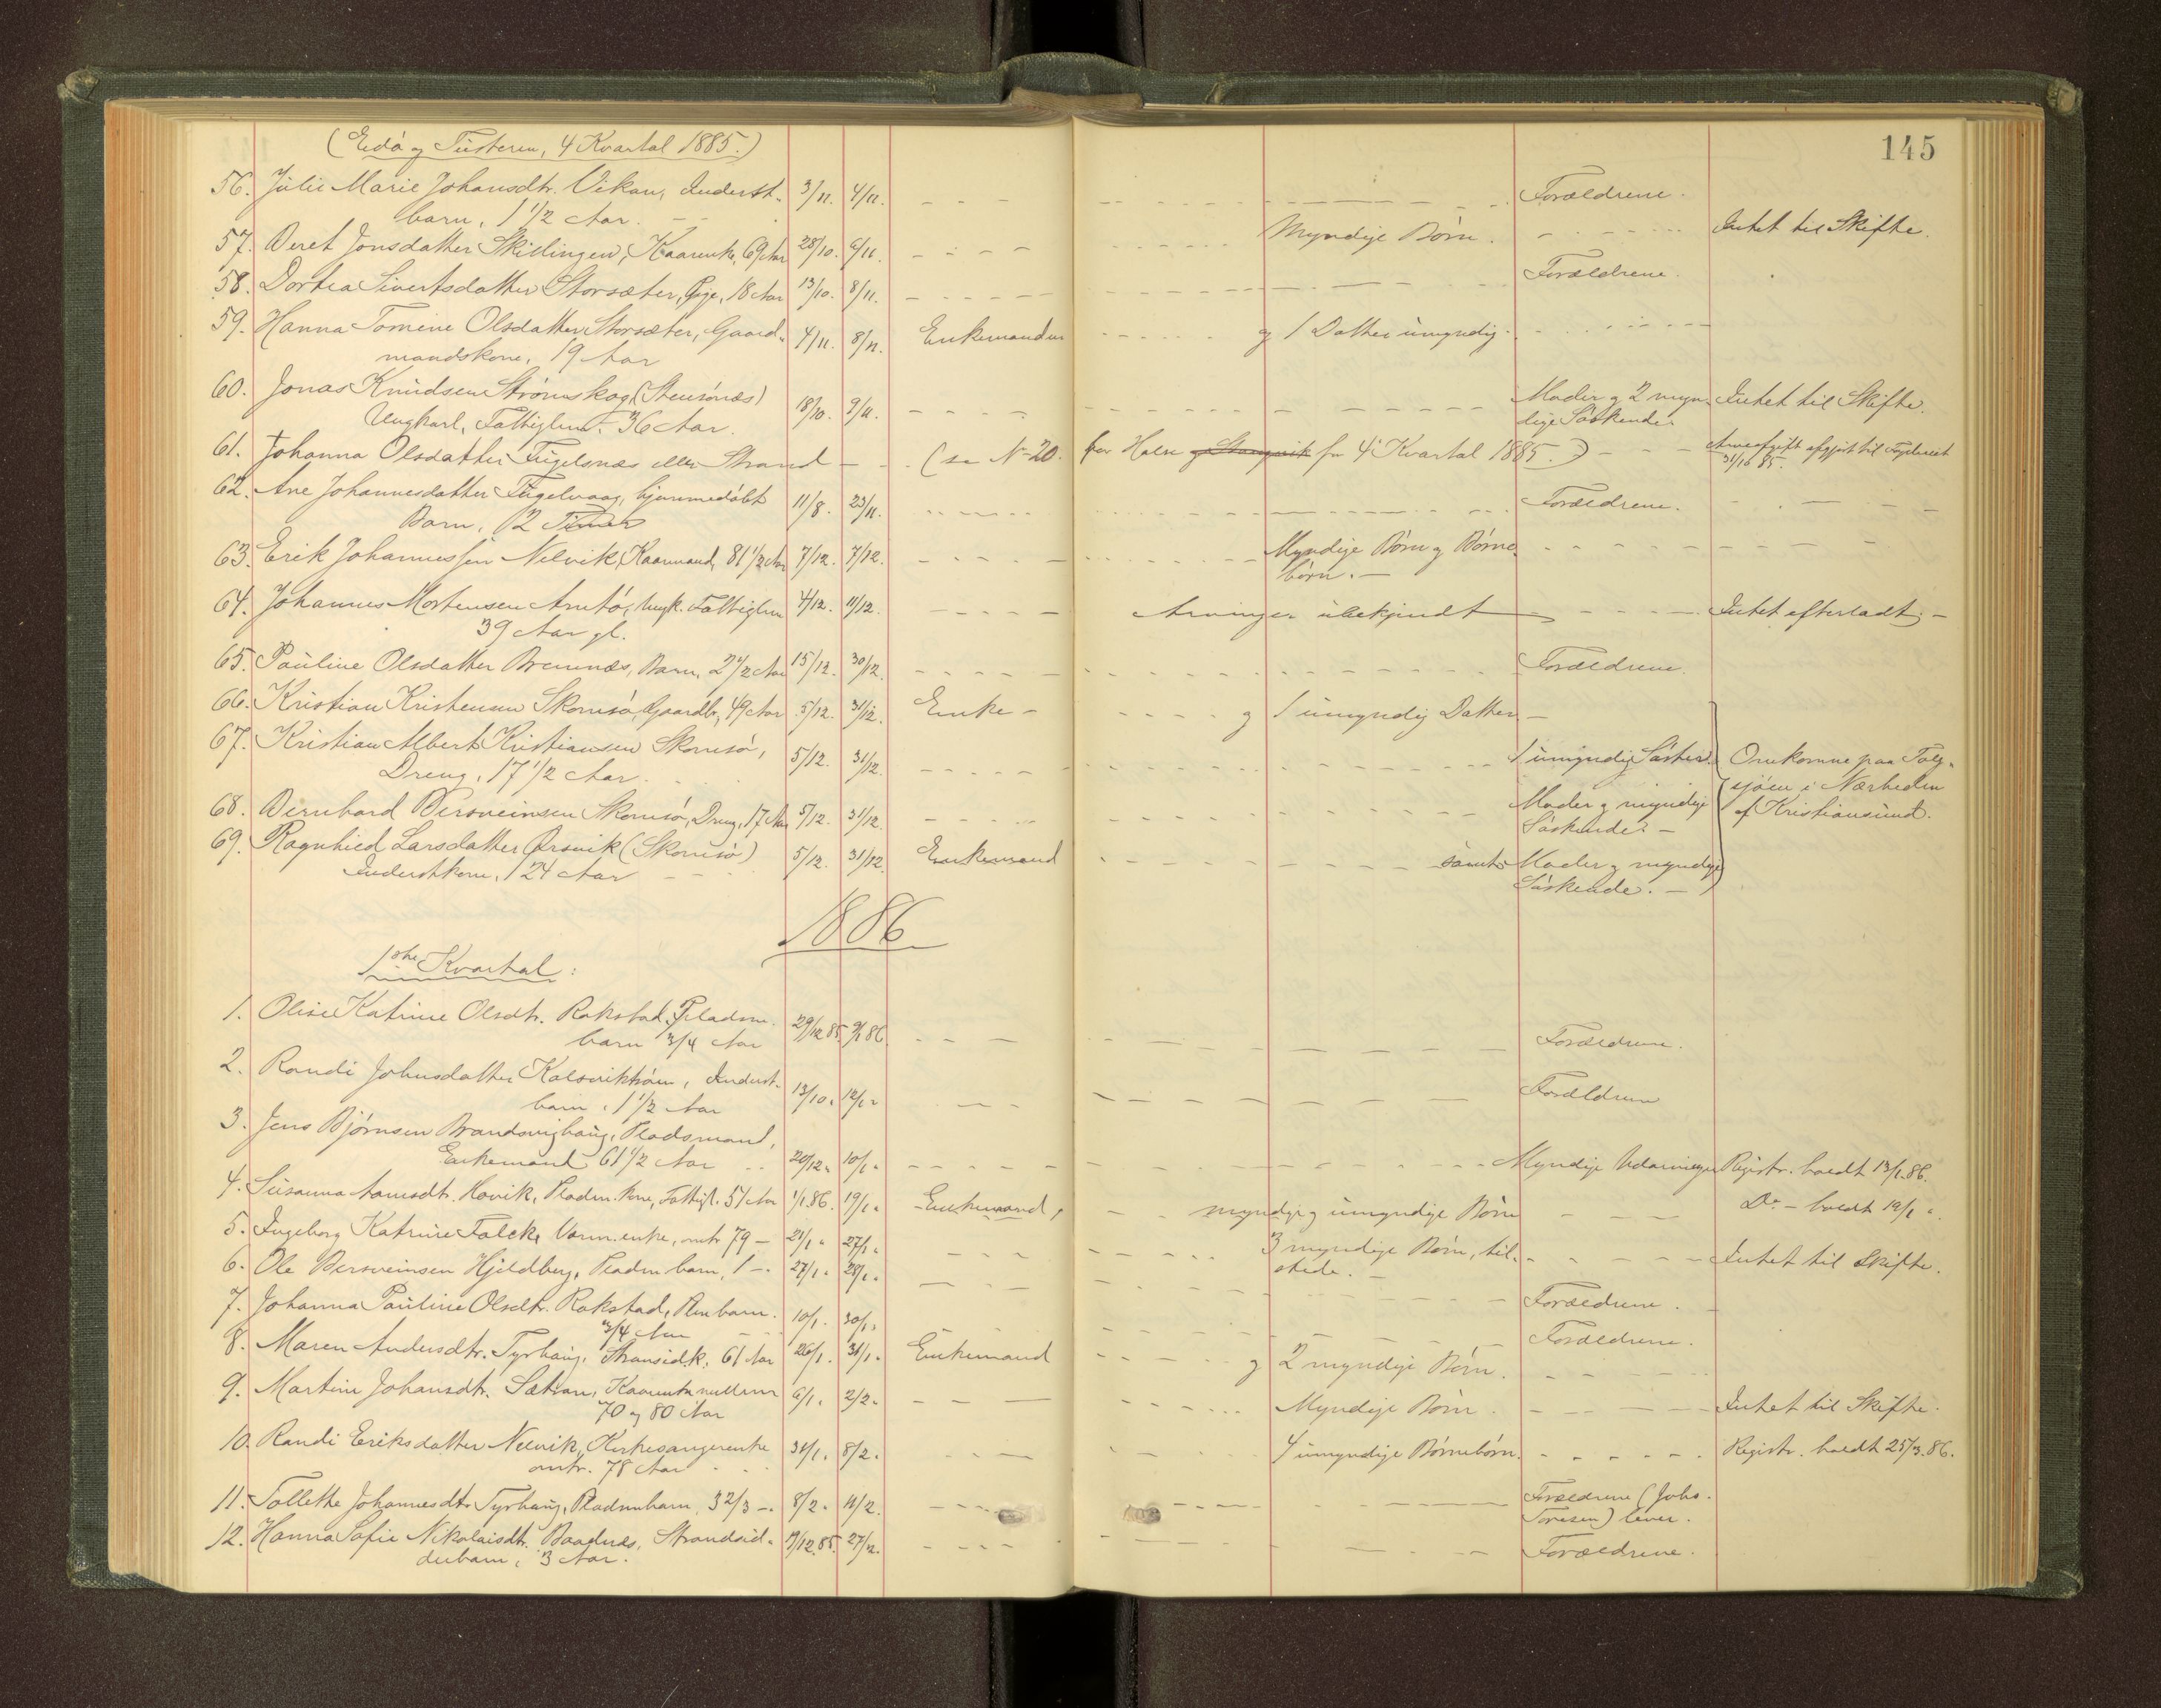 145
(Edö og Tusteren, 4 Kvartal 1885.)
56. Julie Marie Johansdtr. Vikan, Inderst- 3/11. 4/11. Forældrene.
barn, 1 1/2 Aar.
57. Beret Jonsdatter Skillingen, Kaarenke, 69 Aar 28/10. 6/11. Myndige Börn. Intet til Skifte.
58. Dortea Sivertsdatter Storsæter, Pige, 18 Aar 13/10. 8/11. Forældrene.
59. Hanna Tomine Olsdatter Storsæter, Gaard- 4/11. 8/11. Enkemanden og 1 Datter umyndig.
mandskone, 19 Aar
60. Jonas Knudsen Strömskag (Stensönæs) 18/10. 9/11. Moder og 2 myn- Intet til Skifte.
Ungkarl, Fattiglem. 36 Aar. dige Söskende.
61. Johanna Olsdatter Fugelsnæs eller Strand - (se No 20. for Halse for 4de Kvartal 1885.) Arveafgift afgjort til Fogderiet
31/16 85.
62. Ane Johannesdatter Fugelvaag, hjemmedöbt 11/8. 23/11. Forældrene.
Barn, 12 Timer
63. Erik Johannessen Nelvik, Kaarmand, 81 1/2 Aar 7/12. 7/12. Myndige Börn og Börne-
börn. -
64. Johannes Mortensen Arntö, Ungk. Fattiglem 4/12. 11/12. Arvinger ubekjendt Intet efterladt. -
39 Aar gl.
65. Pauline Olsdatter Bremnes, Barn, 2 1/2 Aar 15/12. 30/12. Forældrene.
66. Kristian Kristensen Skornsö, Gaardbr., 49 Aar 5/12. 31/12. Enke - og 1 umyndig Datter -
67. Kristian Albert Kristiansen Skornsö, 5/12. 31/12. 1 umyndig Söster. Omkomne paa Folg-
Dreng, 17 1/2 Aar. sjöen i Nærheden
68. Bernhard Bersveinsen Skornsö, Dreng, 17 Aar 5/12. 31/12. Moder og myndige af Kristiansund.
Söskende. -
69. Ragnhild Larsdatter Orsvik (Skornsö) 5/12. 31/12. Enkemand samt Moder og myndige
Inderstkone, 24 Aar Söskende. -
1886
1ste Kvartal:
1. Olise Katrine Olsdtr. Rokstad, Pladsm. 29/12 85. 9/1 86. Forældrene.
barn 3/4 Aar
2. Randi Johnsdatter Kalsvik, Inderst- 13/10. 12/1. Forældrene
barn, 1 1/2 Aar
3. Jens Björnsen Brandsvighaug, Pladsmand,
Enkemand 61 1/2 Aar 20/12. 10/1. Myndige Udarvinger Registr. holdt 13/1.86.
4. Susanna Aamsdtr. Hovik, Pladsm. kone, Fattigl. 51 Aar 1/1.86. 19/1. Enkemand, myndige og umyndige Börn Do - holdt 19/1
5. Ingeborg Katrine Falck, enke, omtr 79 - 21/1. 27/1. 3 myndige Börn, til- Intet til Skifte.
stede. -
6. Ole Bersveinsen Hjeldberg, Pladsm barn, 1 -. 27/1. 28/1. Forældrene.
7. Johanna Pauline Olsdtr. Rokstad, Plm barn. 10/1. 30/1. Forældrene.
3/4 Aar
8. Maren Andersdtr. Tyrhaug, Stransidk. 61 Aar 26/1. 31/1. Enkemand og 2 myndige Börn.
9. Martine Johansdtr. Sætran, Kaarenke mellem 6/1. 2/2. Myndige Börn. Intet til Skifte.
70 og 80 Aar
10. Randi Eriksdatter Nelvik, Kirkesangerenke 31/1. 8/2. 4 umyndige Börnebörn. Registr. holdt 25/3.86.
omtr. 78 Aar
11. Tollette Johannesdtr Tyrhaug, Pladsmbarn 3 2/3 -. 8/2. 11/2. Forældrene (Johs.
Toresen) lever.
12. Hanna Sofie Nikolaisdtr. Baadnes, Strandsid- 17/12.85. 27/2. Forældrene.
derbarn, 3 Aar.